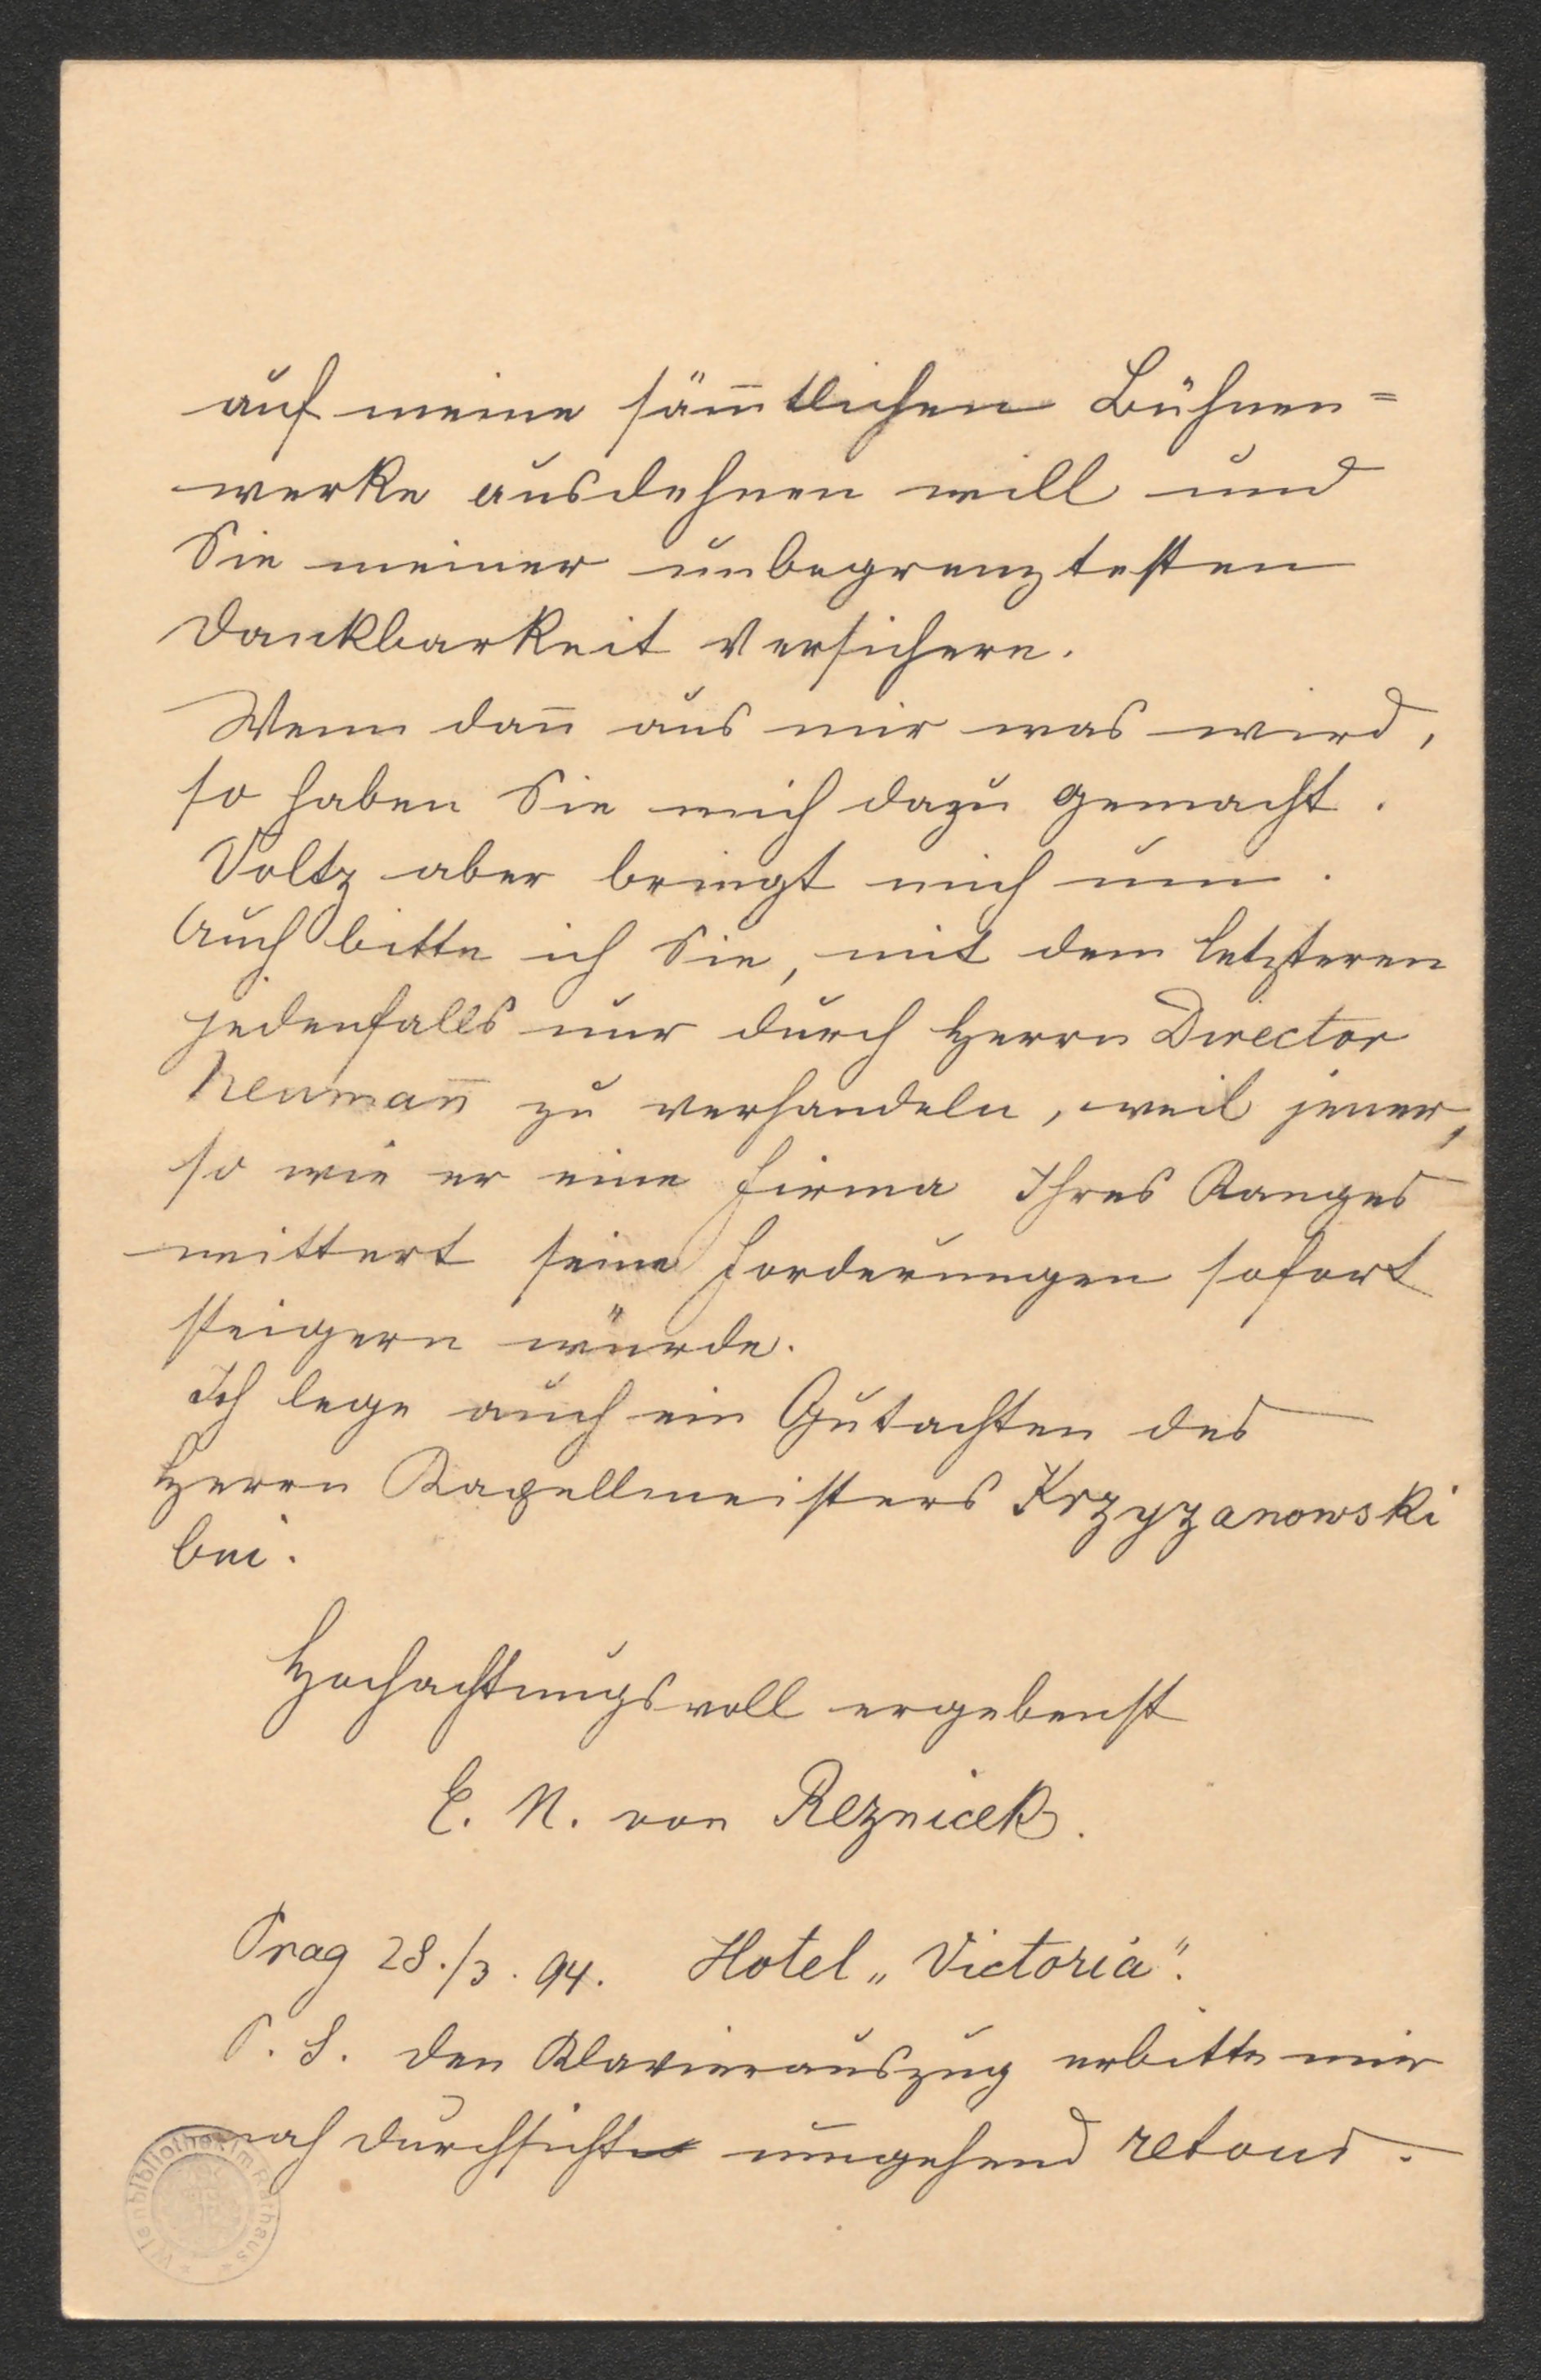 auf meine säm̅tlichen Bühnen=
werke ausdehnen will und
Sie meiner unbegrenztesten
Dankbarkeit versichere.
Wenn dan̅ aus mir was wird,
so haben Sie mich dazu gemacht.
Voltz aber bringt mich um.
Auch bitte ich Sie, mit dem letzteren
jedenfalls nur durch Herrn Director
Neuman̅ zu verhandeln, weil jener,
so wie er eine Firma Ihres Ranges
wittert seine Forderungen sofort
steigern würde.
Ich lege auch ein Gutachten des
Herrn Kapellmeisters Krzyzanowski
bei.
Hochachtungsvoll ergebenst
E. N. von Reznicek.
Prag 28./3. 94. Hotel „Victoria".
P. S. Den Klavierauszug erbitte mir
nach Durchsicht umgehend retour.
Wienbibliothek im Rathaus